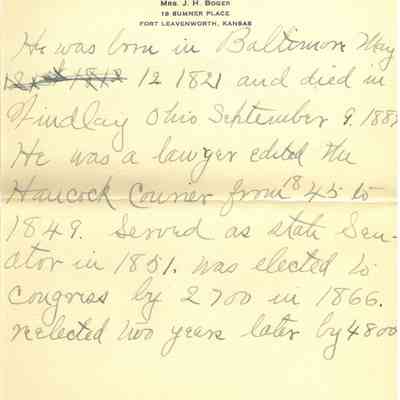 Mrs. J. H. Boger
19 Sumner Place
Fort Leavenworth, Kansas
He was born in Baltimore May
12 1821 and died in
Findlay Ohio September 9. 188
He was a lawyer edited the
Hancock Courier from 1845 to
1849. Served as state Sen-
ator in 1851. was elected to
Congress by 2700 in 1866.
reelected two years later by 4800